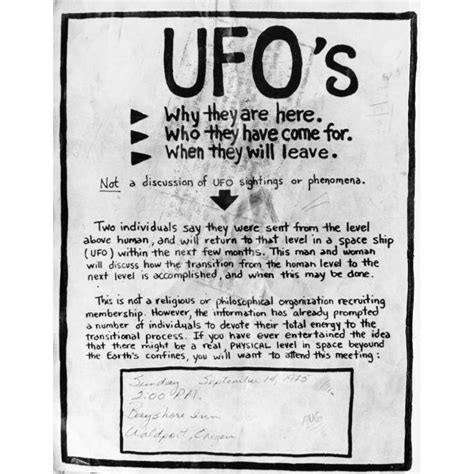 UFO's
Why they are here.
Who they have come for.
When they will leave.
Not a discussion of UFO sightings or phenomena.
Two individuals say they were sent from the level
above human, and will return to that level in a space ship
(UFO) within the next few months. This man and woman
will discuss how the transition from the human level to the
next level is accomplished, and when this may be done.
This is not a religious or philosophical organization recruiting
membership. However, the information has already prompted
a number of individuals to devote their total energy to the
transitional process. If you have ever entertained the idea
that there might be a real, PHYSICAL level in space beyound
the Earth's confines, you will want to attend this meeting:
Sunday September 14, 1975
2:00 P.M.
Bayshore Inn
Waldport, Oregon